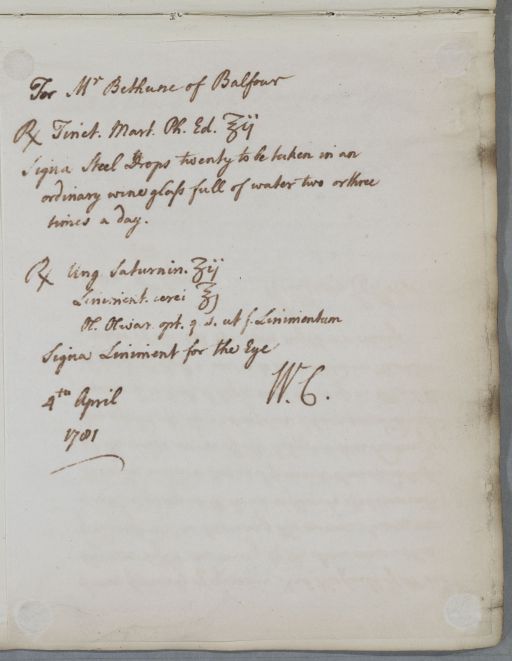 For Mr Bethune of Balfour
℞ Tinct. Mart. Ph. Ed. ℥ij
Signa Steel Drops twenty to be taken in an
ordinary wine glass full of water two or three
times a day.
℞ Ung Saturnin. ℥ij
Liniment. cerei ℥j
Ol. Olivar. opt. q. s. ut f. Linimentum
Signa Liniment for the Eye
W. C.
4th April
1781